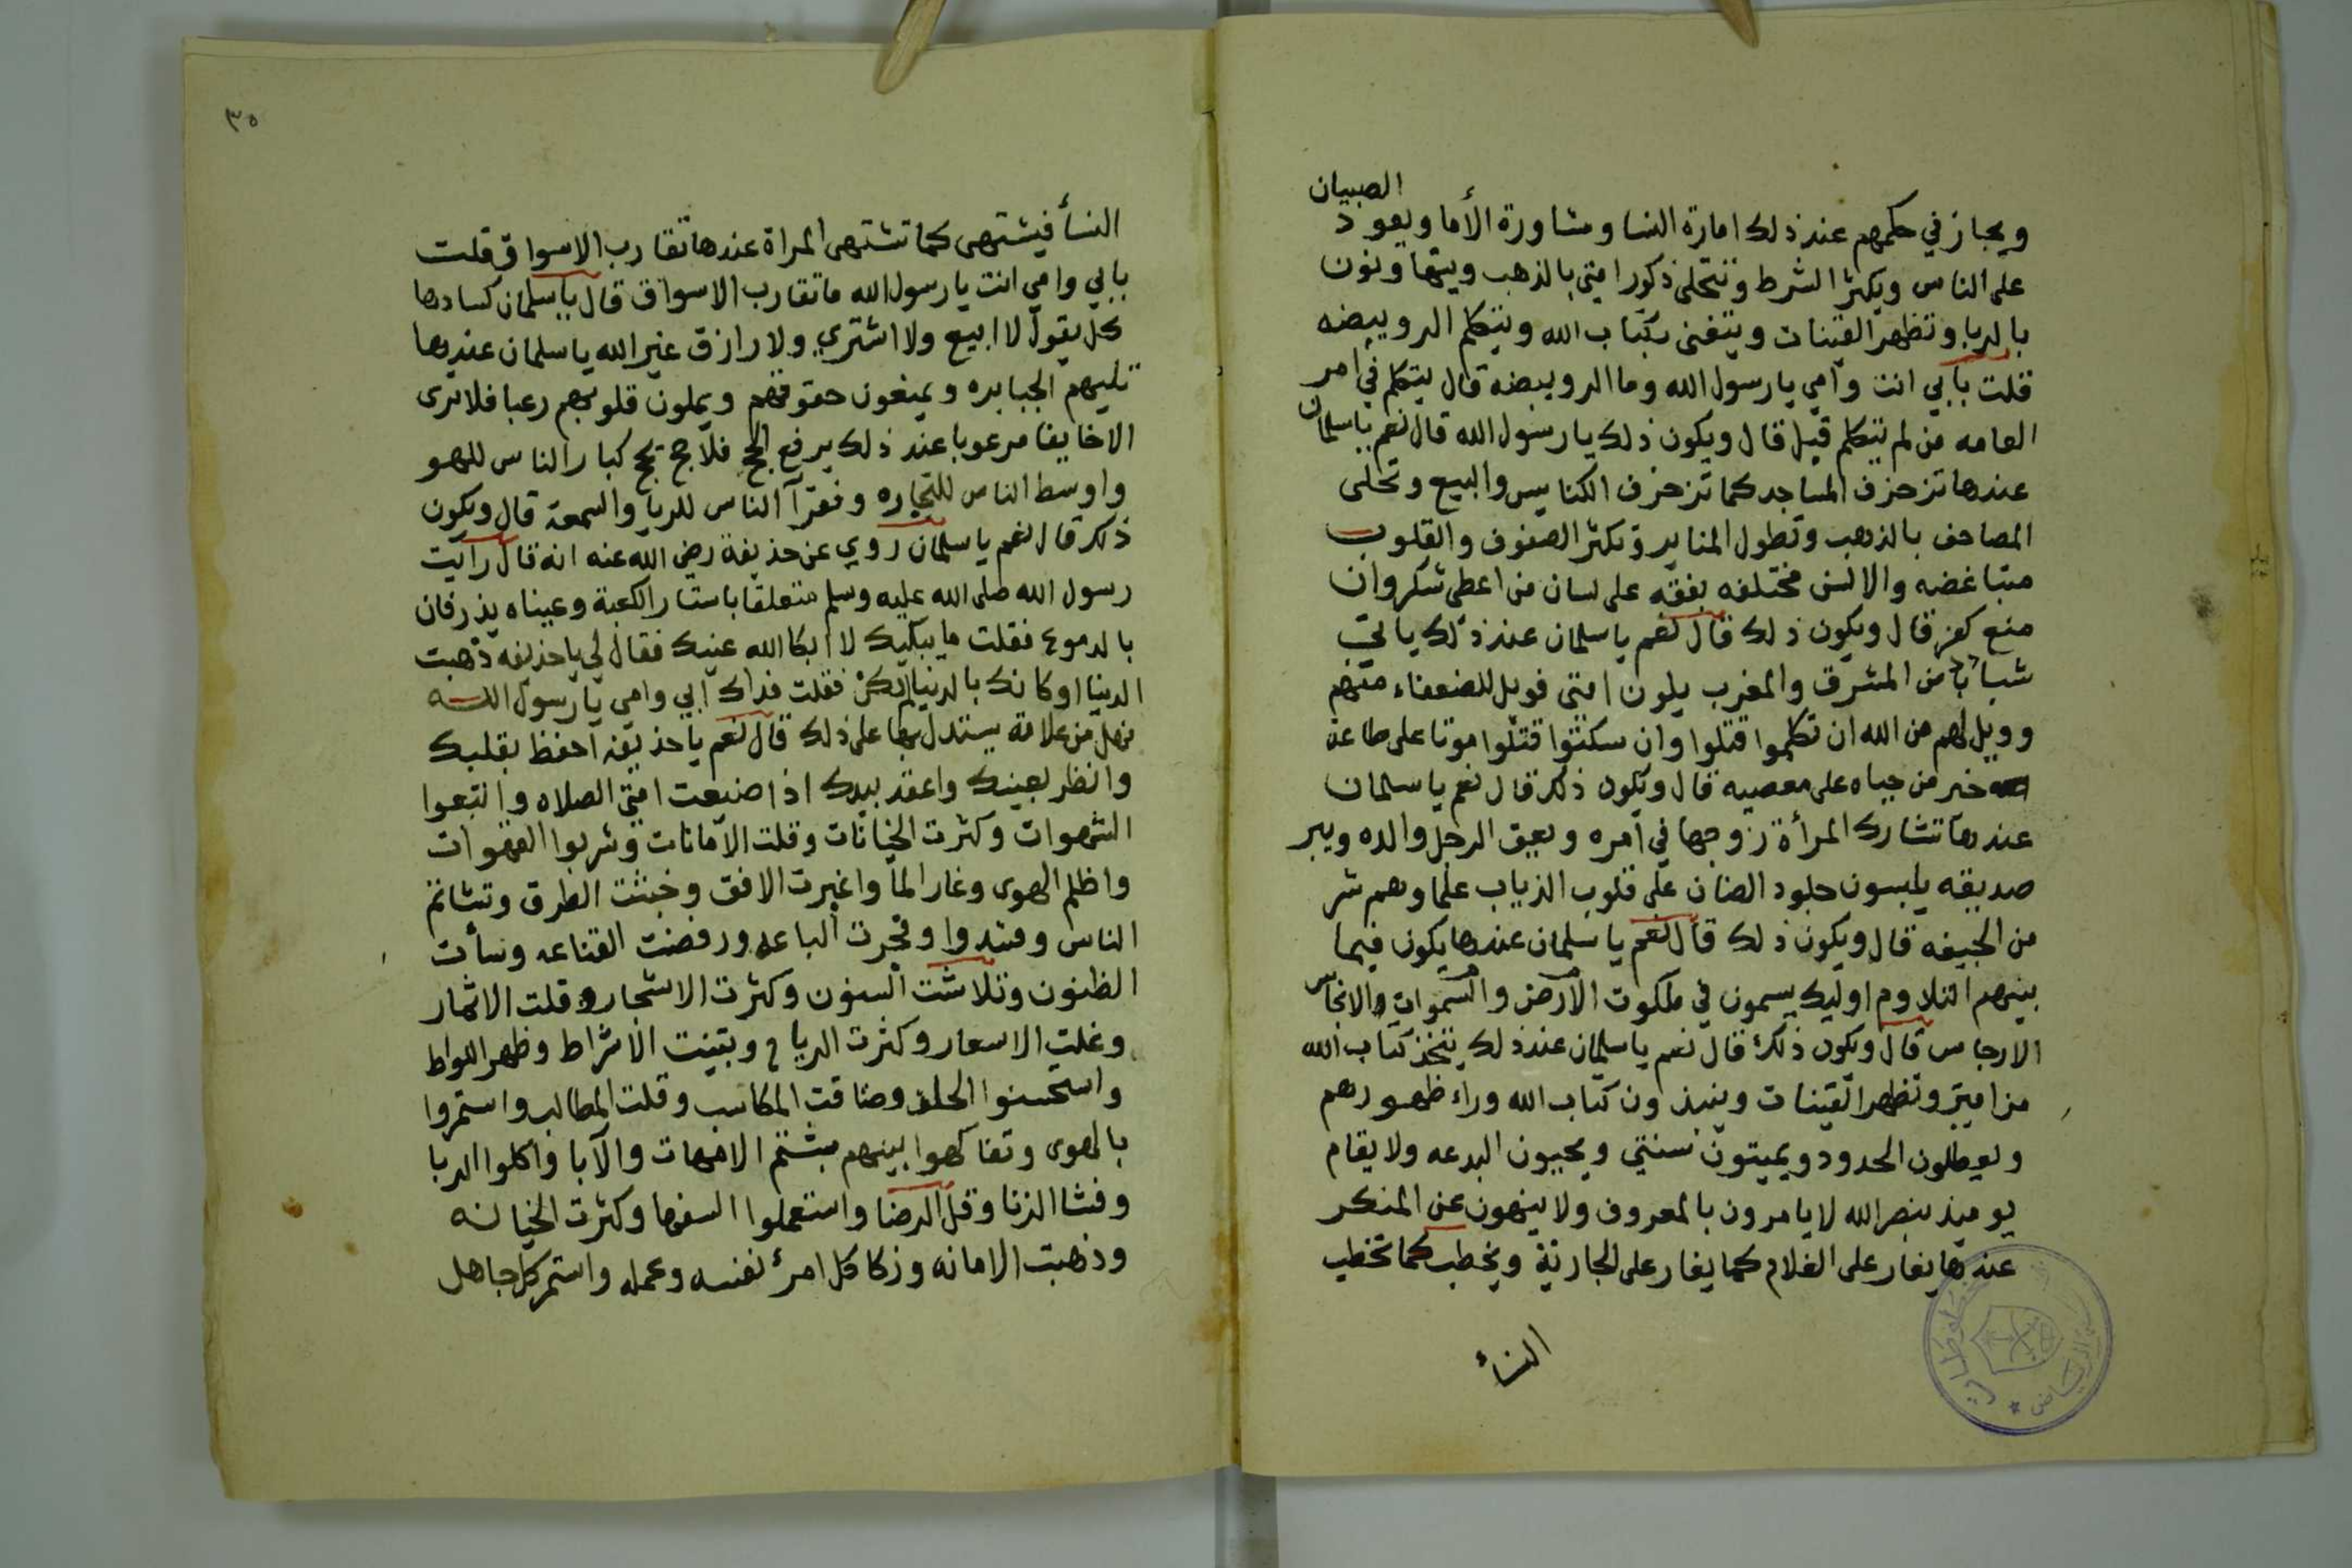 الصبيان
ويجاز في حكمهم عند ذلك امارة النسا ومشاورة الأما ويعود
على الناس ويكثر الشرط وتتحلى ذكور امتي بالذهب ويتهاونون
بالربا وتظهر القينات ويتغنى بكتاب الله ويتكلم الرويبضه
قلت بابي انت وامي يارسول الله وما الرويبضه قال يتكلم في امر
العامه من لم يتكلم قبل قال ويكون ذلك يارسول الله قال نعم ياسلمان
عندها تزخرف المساجد كما تزخرف الكنايس والبيع وتحلى
المصاحف بالذهب وتطول المنابر وتكثر الصفوف والقلوب
متباغضه والالسن مختلفه بفقه على لسان من اعطى شكر وان
منع كفر قال ويكون ذلك قال نعم ياسلمان عند ذلك ياتي
من المشرق والمغرب يلون امتي فويل للضعفاء منهم
وويل لهم من الله ان تكلموا قتلوا وان سكتوا قتلوا موتا على طاعة
خير من حياه على معصيه قال ويكون ذلك قال نعم ياسلمان
عندها تشارك المرأة زوجها في امره ويعق الرجل والده ويبر
صديقه يلبسون جلود الضان على قلوب الذياب علماوهم شر
من الجيفه قال ويكون ذلك قال نعم ياسلمان عندها يكون فيما
بينهم التلاوم اوليك يسمون في ملكوت الارض والسموات والانجاس
الارجاس قال ويكون ذلك قال نعم ياسلمان عند ذلك يتخذ كتاب الله
مزامير وتظهر القينات وينبذون كتاب الله وراء ظهورهم
ويعطلون الحدود ويميتون سنتي ويحيون البدعه ولا يقام
يوميذ بنصر الله لا يامرون بالمعروف ولا ينهون عن المنكر
عندها يغار على الغلام كما يغار على الجارية ويخطب كما تخطب
النساء
٣٥
النسأ فيشتهى كما تشتهى المراة عندها تقارب الاسواق قلت
بابي وامي انت يارسول الله ما تقارب الاسواق قال ياسلمان كسادها
كل يقول لا ابيع ولا اشتري ولا رازق غير الله ياسلمان عندها
تليهم الجبابره ويمنعون حقوقهم ويملون قلوبهم رعبا فلا ترى
الا خايفا مرعوبا عند ذلك يرفع الحج فلا حج تحج كبار الناس للهو
واوسط الناس للتجاره وفقرآ الناس للريا والسمعة قال ويكون
ذلك قال نعم ياسلمان روي عن حذيفة رضي الله عنه انه قال رآيت
رسول الله صلى الله عليه وسلم متعلقا باستار الكعبة وعيناه يذرفان
بالدموع فقلت ما يبكيك لا ابكا الله عينك فقال لي ياحذيفه ذهبت
الدنيا او كانك بالدنيا لم تكن فقلت فداك ابي وامي يارسول الله
فهل من علامة يستدل بها على ذلك قال نعم ياحذيفه احفظ بقلبك
وانظر بعينك واعقد بيدك اذا ضيعت امتي الصلاه واتبعوا
الشهوات وكثرت الخيانات وقلت الامانات وشربوا القهوات
واظلم الهوى وغار الما واغبرت الافق وخبثت الطرق وتشاتم
الناس وفسدوا وفجرت الباعه ورفضت القناعه وسأت
الظنون وتلاشت السنون وكثرت الاشجار وقلت الاثمار
وغلت الاسعار وكثرت الرياح وبينت الاشراط وظهر اللواط
واستحسنوا الخلف وضاقت المكاسب وقلت المطالب واستمروا
بالهوى وتفاكهوا بينهم بشتم الامهات والآبا واكلوا الربا
وفشا الزنا وقل الرضا واستعملوا السفها وكثرت الخيانه
وذهبت الامانه وزكا كل امرئ نفسه وعمله واستمر كل جاهل